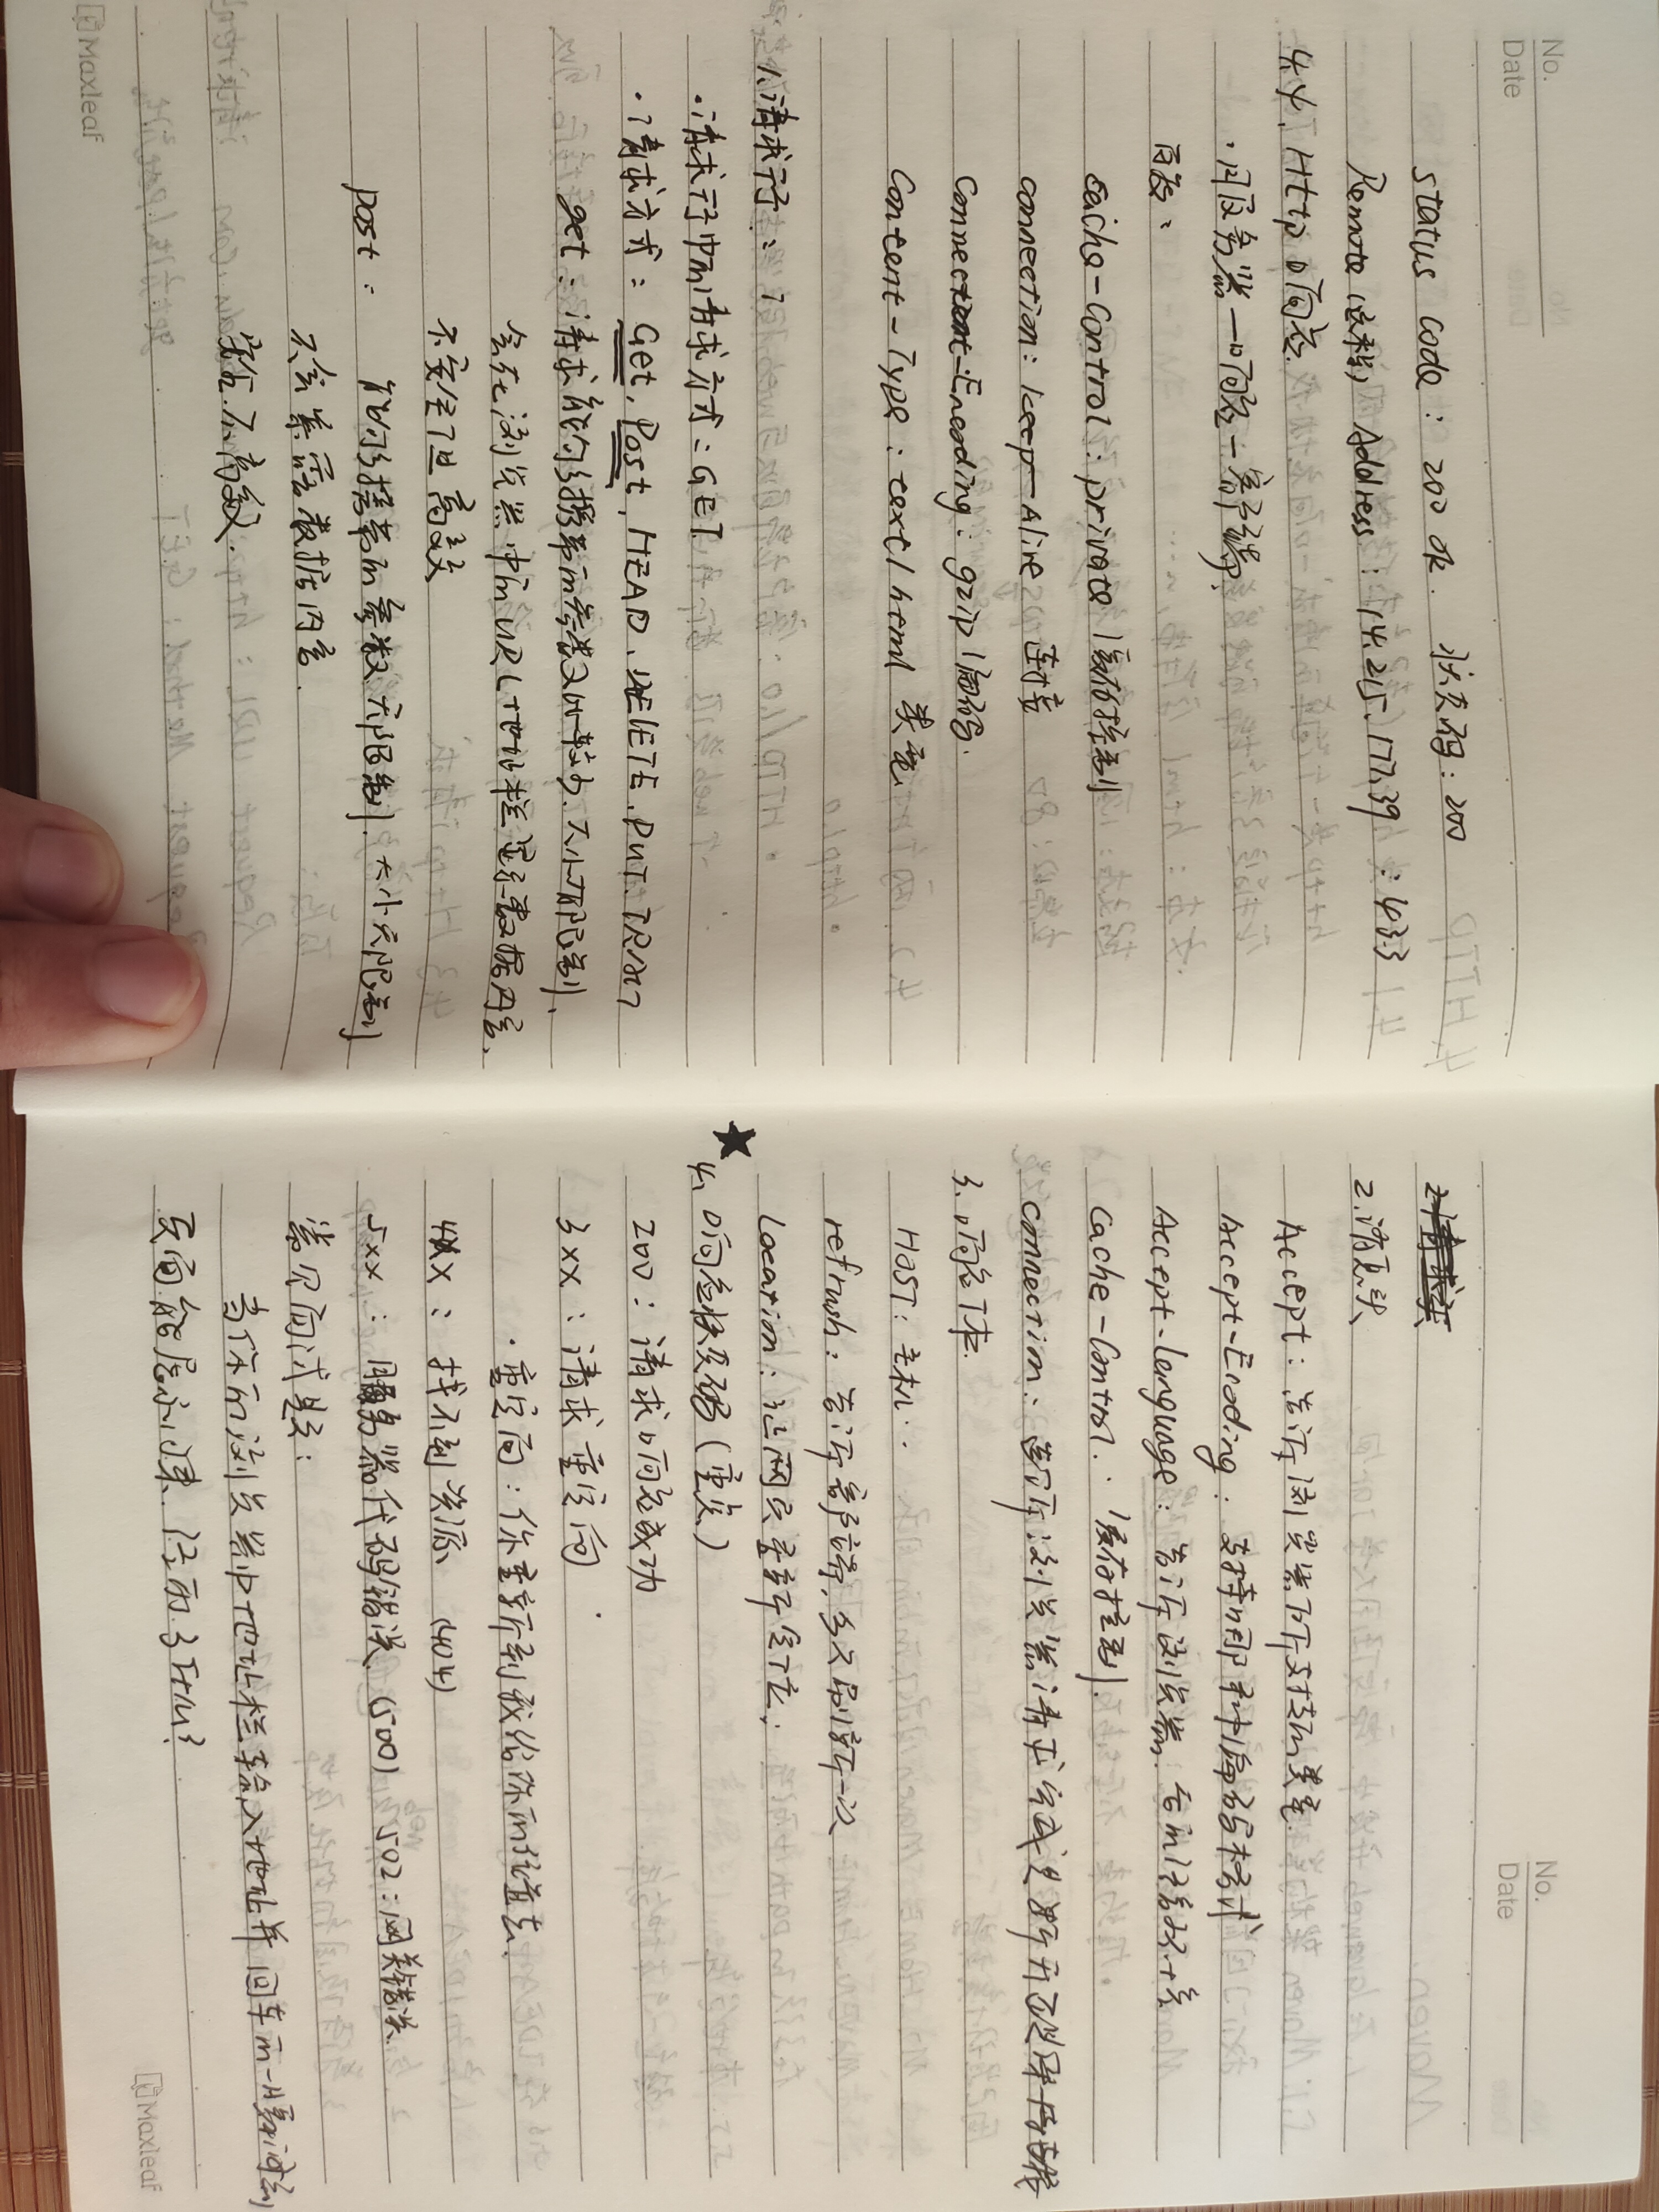 No.
Date
status code : 200 ok 状态码:200
Remote (远程) Address : 14.215.177.39 : 433
4.4、Http响应
·服务器—响应—客户端.
百度、
Cache-Control : private 缓存控制
connection: keep-Alive 连接
Encoding : gzip 编码.
Content-Type : text/html 类型
1.请求行、
·请求行中的请求方式:GET
·请求方式: Get, Post, HEAD, DELETE, PUT, TRAC
get:请求能够携带的参数比较少,大小有限制、
会在浏览器中的URL地址栏显示数据内容、
不安全但高效
post: 能够携带的参数无限制.大小无限制
不会显示数据内容.
安全.不高效.
Maxleaf
No.
Date
2.消息头
Accept:告诉浏览器所支持的类型
Accept-Encoding:支持哪种编码格式
Accept-Language:告诉浏览器.它的语言环境
Cache-Control:缓存控制.
connection:告诉浏览器请求完成是断开还是保持连接
3.响应体.
HOST:主机.
refrush:告诉客户端,多久刷新一次
Location:让网页重新定位;
★
4、响应状态码(重点)
200:请求响应成功
3xx:请求重定向.
·重定向:你重新到我给你的位置去.
4xx:找不到资源 (404)
5xx:服务器代码错误 (500) 502:网关错误
常见面试题:
当你的浏览器中地址栏输入地址并回车的一瞬间到
页面能展示出来,经历了什么?
Maxleaf